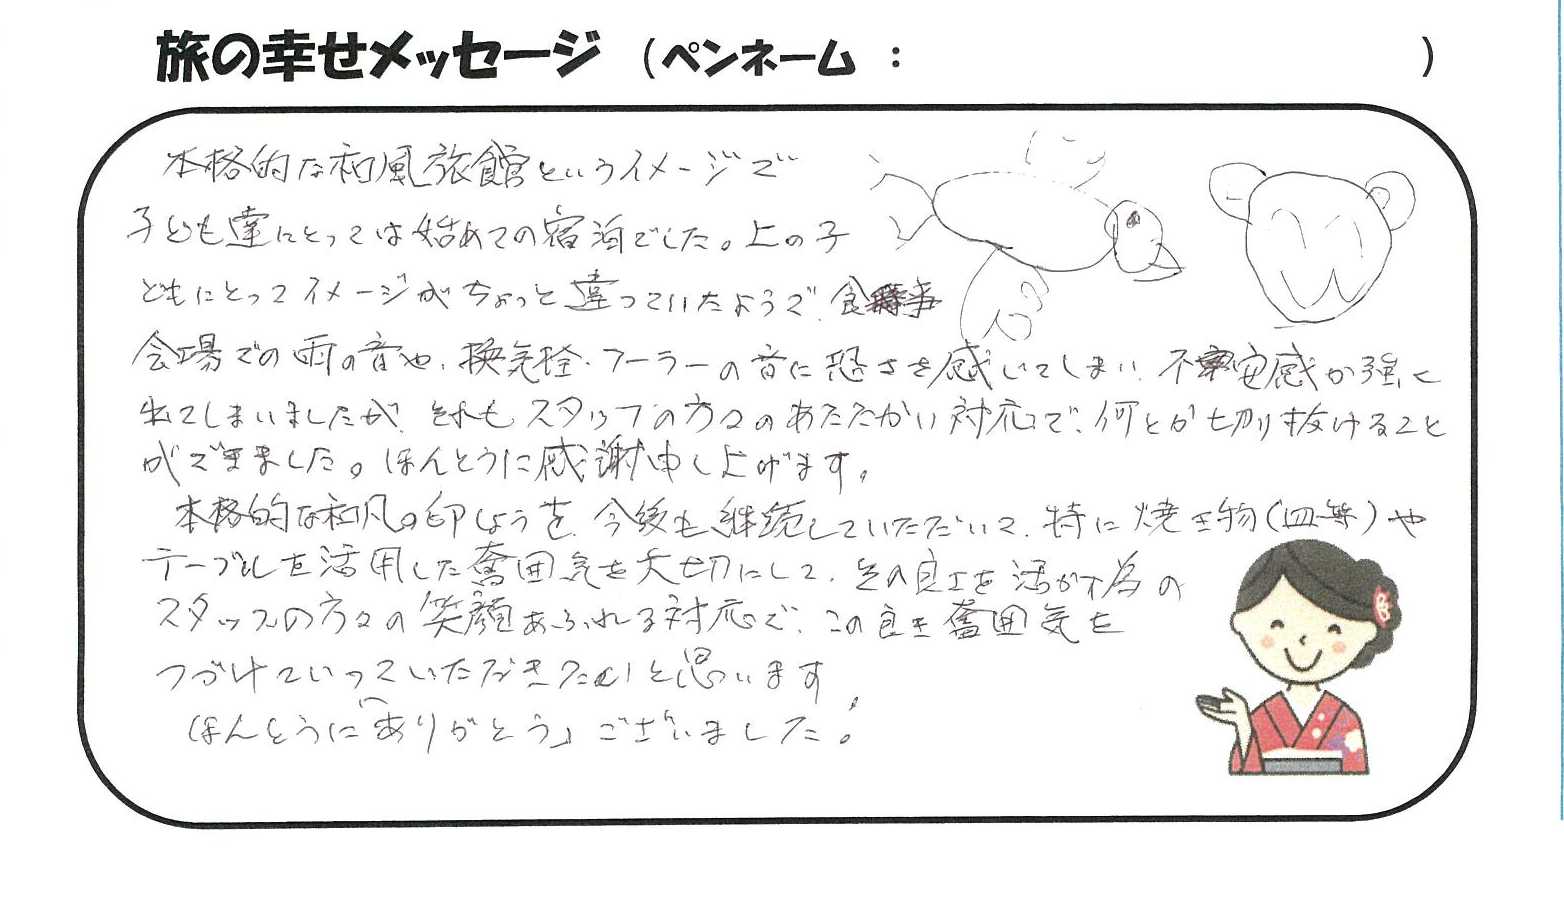 旅の幸せメッセージ (ペンネーム : )
本格的な和風旅館というイメージで
子ども達にとっては始めての宿泊でした。上の子
どもにとってイメージがちょっと違っていたようで、食事
会場での雨の音や、換気栓・クーラーの音に恐さを感じてしまい、不安感が強く
出てしまいましたが、それもスタッフの方々のあたたかい対応で、何とか切り抜けること
ができました。ほんとうに感謝申し上げます。
本格的な和風の印しょうを、今後も継続していただいて、特に焼き物(皿等)や
テーブルを活用した雰囲気を大切にして、その良さを活かす為の
スタッフの方々の笑顔あふれる対応で、この良き雰囲気を
つづけていっていただきたいと思います
ほんとうに「ありがとう」ございました!